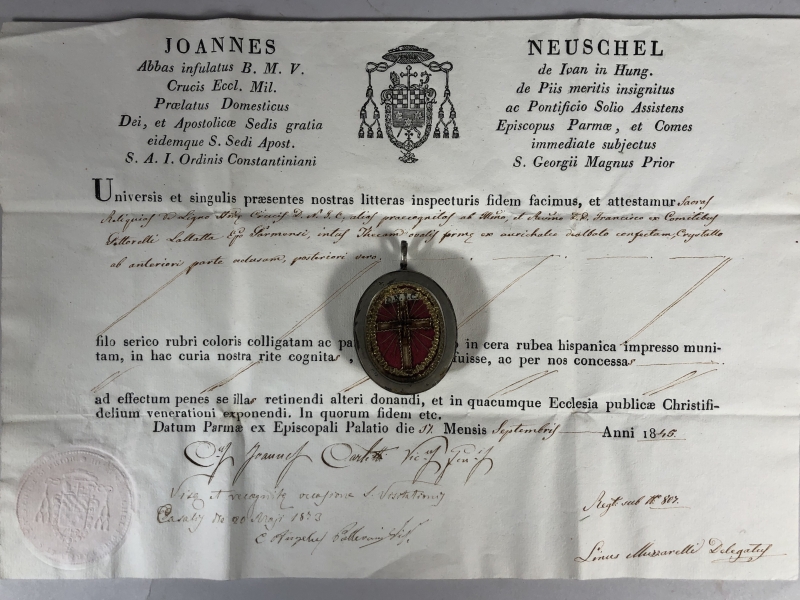 JOANNES
Abbas infulatus B. M. V.
Crucis Eccl. Mil.
Prælatus Domesticus
Dei, et Apostolicæ Sedis gratia
eidemque S. Sedi Apost.
S. A. I. Ordinis Constantiniani
NEUSCHEL
de Ivan in Hung.
de Piis meritis insignitus
ac Pontificio Solio Assistens
Episcopus Parmæ, et Comes
immediate subjectus
S. Georgii Magnus Prior
Universis et singulis præsentes nostras litteras inspecturis fidem facimus, et attestamur Sacras
Reliquias de Ligno Crucis D. N. J. C. alias praecognitas ab Illmo, et Francisco ex Comitibus
Lallatta Parmensi, intus Thecam ovalis formæ ex aurichalco dealbato confectam, Crystallo
ab anteriori parte clausam, posteriori vero
filo serico rubri coloris colligatam ac in cera rubea hispanica impresso muni-
tam, in hac curia nostra rite cognitas, fuisse, ac per nos concessas
ad effectum penes se illas retinendi alteri donandi, et in quacumque Ecclesia publicæ Christifi-
delium venerationi exponendi. In quorum fidem etc.
Datum Parmæ ex Episcopali Palatio die Mensis Septembris Anni 1845.
Joannes Carletti Vic.us Gen.is
Visa et recognita occasione S. Visitationis
1873
Regt. sub N. 807.
Linus Muzzarelli Delegatus